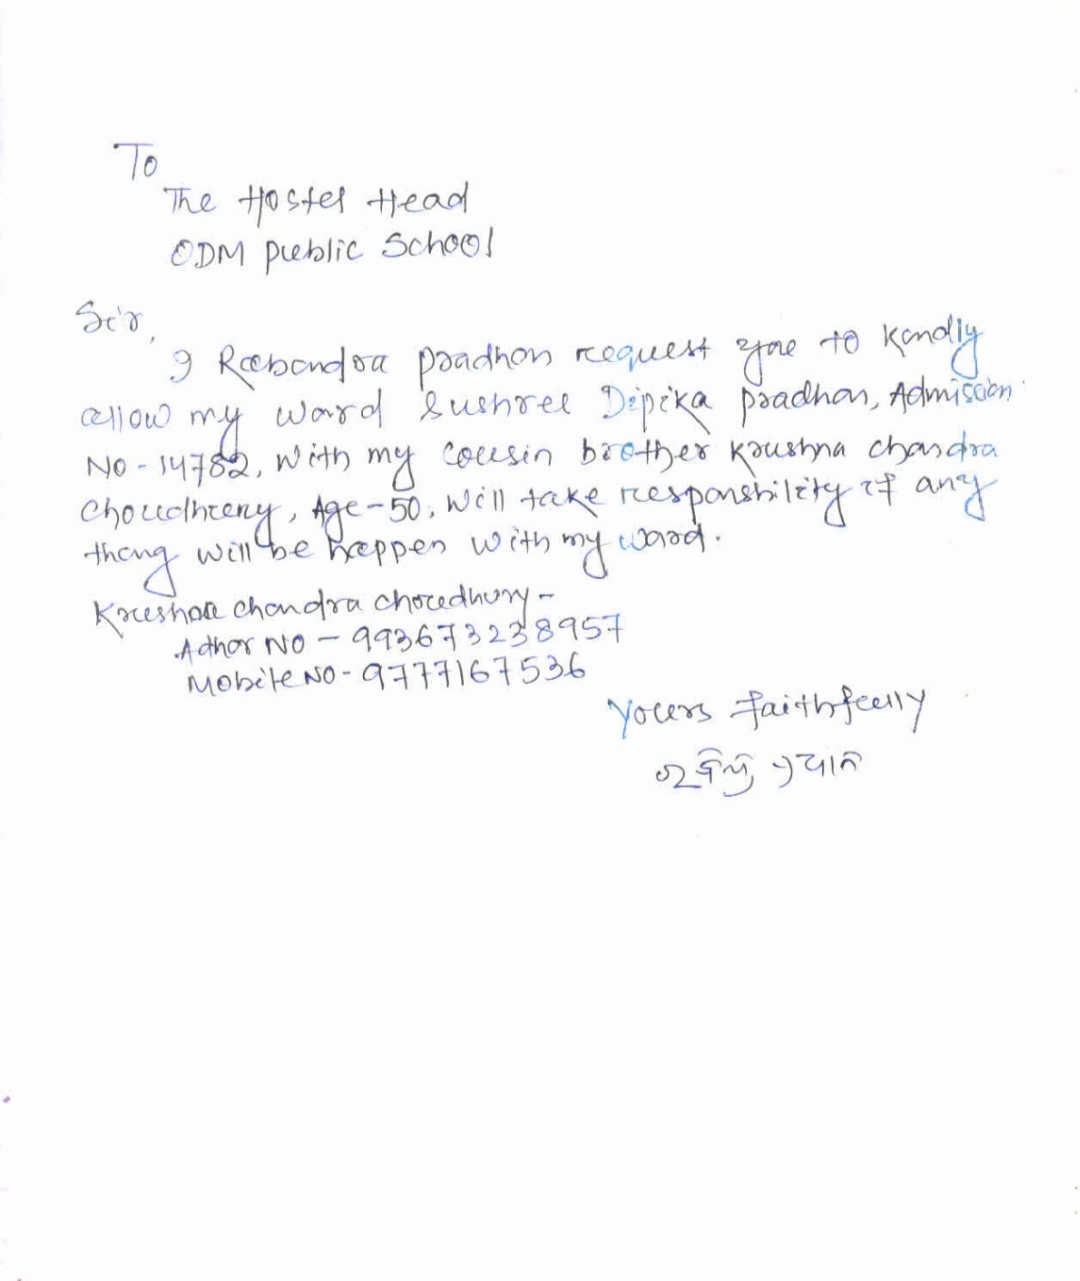 To
The Hostel Head
ODM Public School
Sir,
I Rabandra Pradhan request you to Kandly
allow my ward Sushree Dipika Pradhan, Admission
No - 14782, with my cousin brother Krushna Chandra
Choudhury, Age - 50, will take responsbility if any
thang will be happen with my ward.
Krushna Chandra Choudhury -
Adhar No - 993673238957
Mobile No - 9777167536
Yours faithfully
ରବିନ୍ଦ୍ର ପ୍ରଧାନ